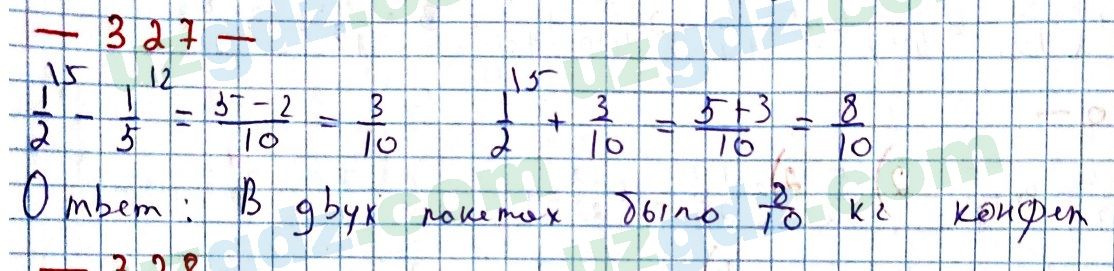 — 327 —
1/2 \5 - 1/5 \2 = 5-2/10 = 3/10   1/2 \5 + 3/10 = 5+3/10 = 8/10
Ответ: В двух пакетах было 8/10 кг конфет
— 328
uzgdz.com